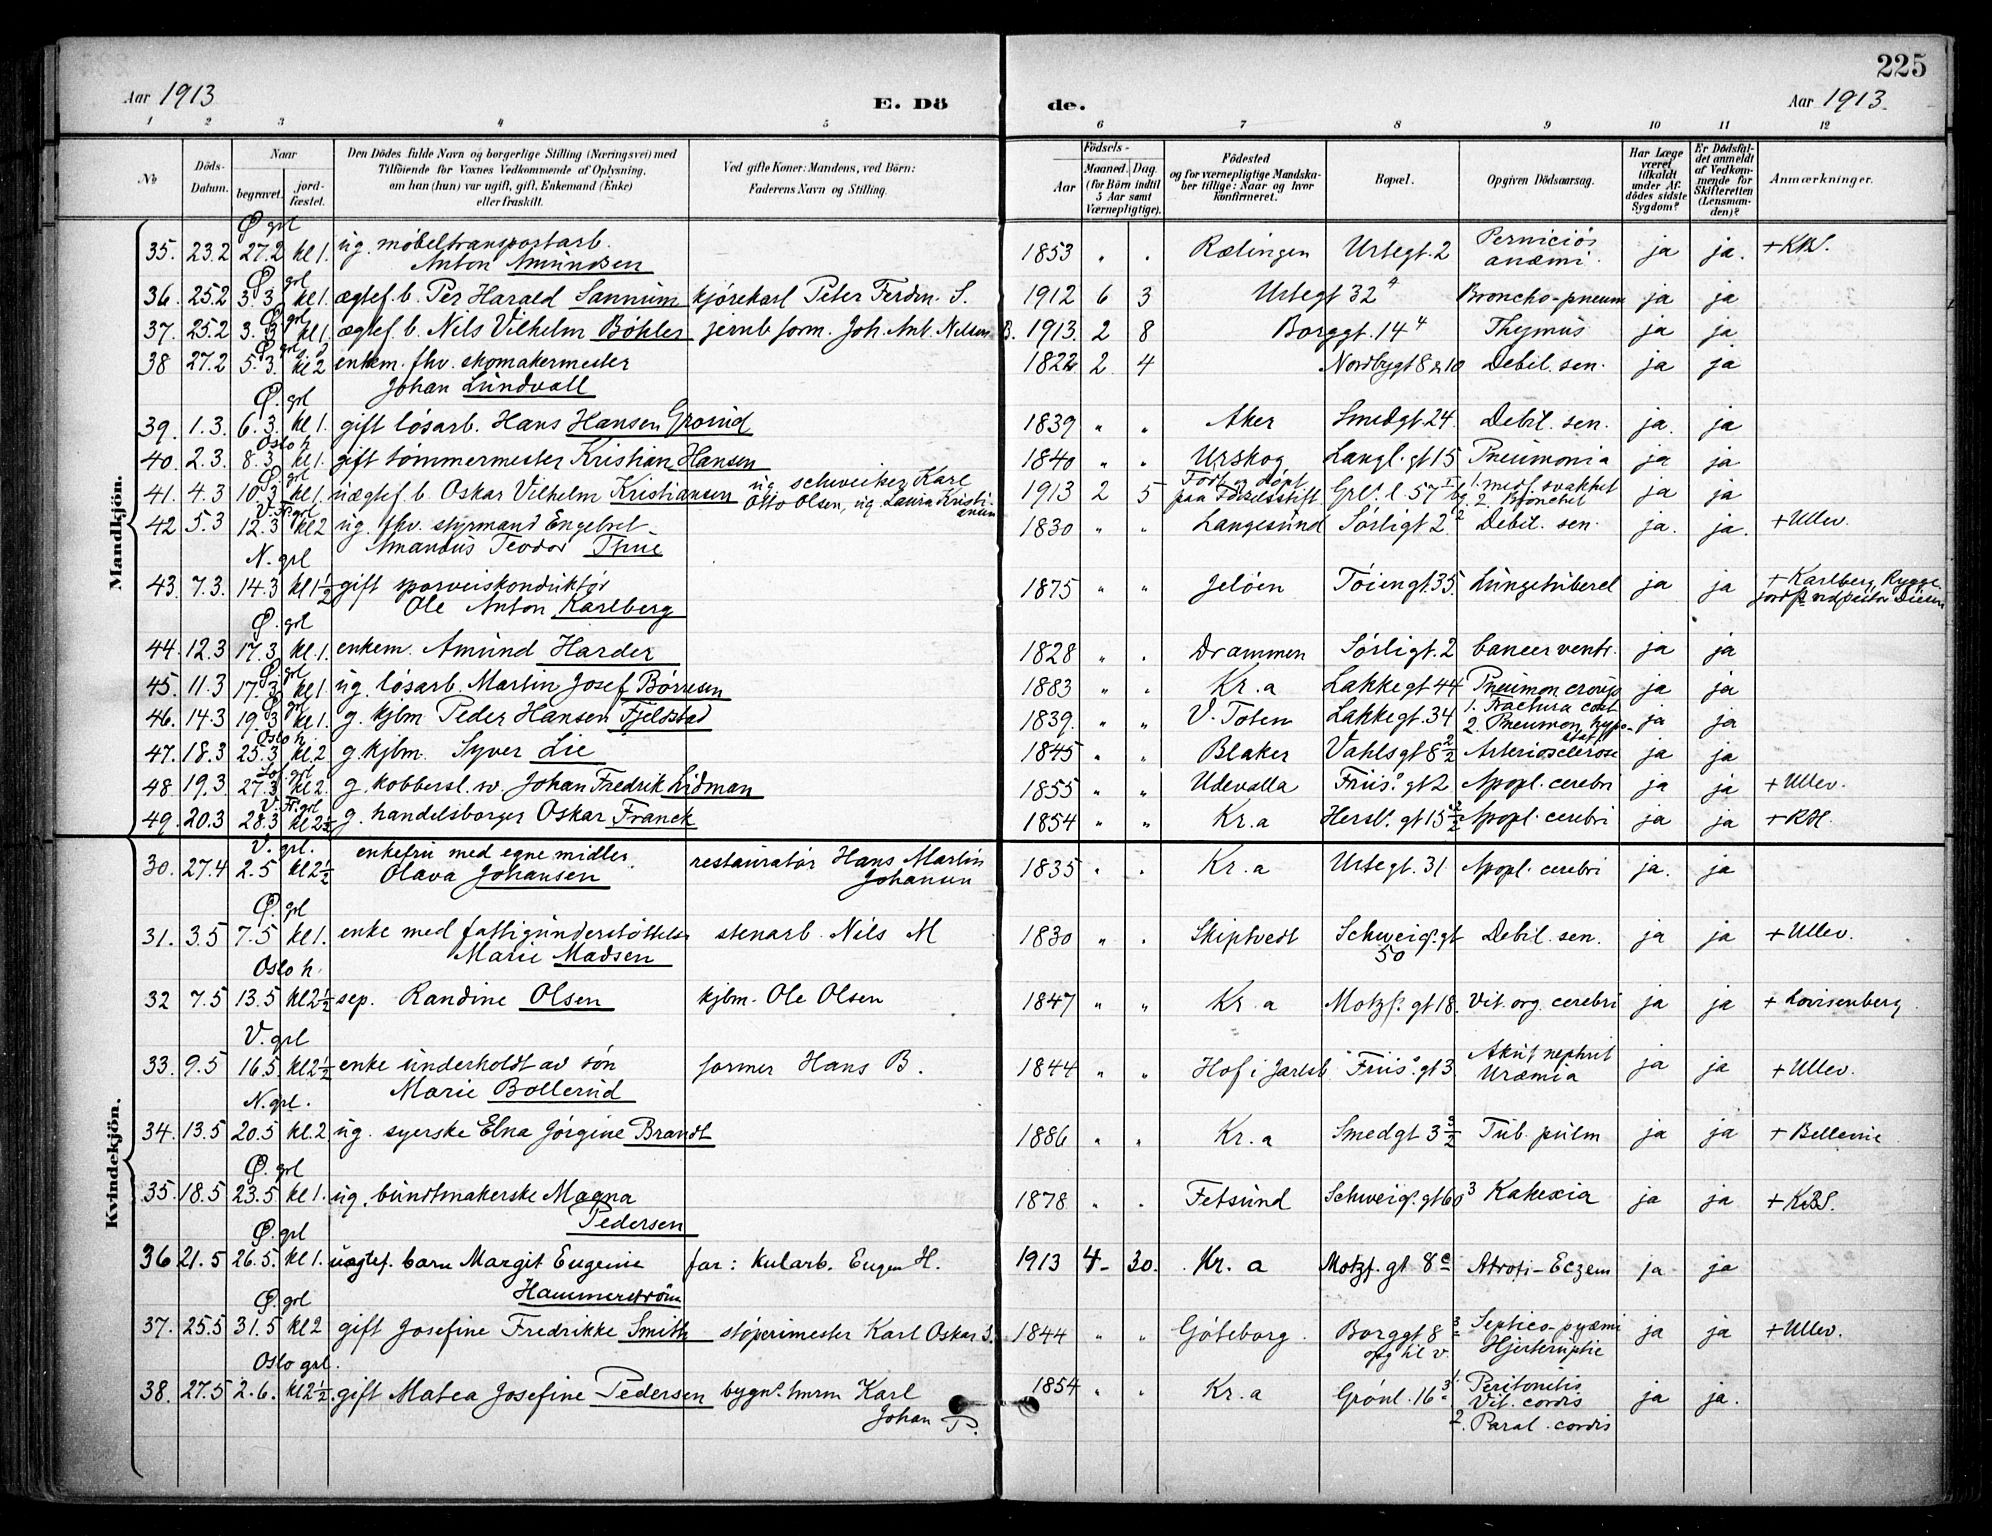 225
Aar 1913
E. Dö
de.
Aar 1913
1 2 3 4 5 6 7 8 9 10 11 12
No
Döds-Datum.
Naar
begravet.
jord-fæstet.
Den Dödes fulde Navn og borgerlige Stilling (Næringsvei) med
Tilföiende for Voxnes Vedkommende af Oplysning,
om han (hun) var ugift, gift, Enkemand (Enke)
eller fraskilt.
Ved gifte Koner: Mandens, ved Börn:
Faderens Navn og Stilling.
Födsels-
Aar
Maaned. Dag.
(for Börn indtil
5 Aar samt
Værnepligtige).
Födested
og for værnepligtige Mandska-
ber tillige: Naar og hvor
konfirmeret.
Bopæl.
Opgiven Dödsaarsag.
Har Læge
været
tilkaldt
under Af-
dödes sidste
Sygdom?
Er Dödsfal-
det anmeldt
af Vedkom-
mende for
Skifteretten
(Lensman-
den)?
Anmærkninger.
Mandkjön.
Ø grl
35. 23.2 27.2 kl 1. ug. møbeltransportarb. 1853 " " Rælingen Urtegt. 2 Perniciös ja ja. + KBS.
Anton Amundsen anæmi.
Ø. grl
36. 25.2 3.3 kl 1. ægtef. b. Per Harald Sannum kjørekarl Peter Ferdin. S. 1912 6 3 Urtegt 32 4 Broncho-pneum ja ja
Ø grl
37. 25.2 3.3 kl 1. ægtef. b. Nils Vilhelm Bøhler jernb. form. Joh. Ant. Nilsen B. 1913. 2 8 Borggt. 14 4 Thymus ja ja
Ø grl
38 27.2 5.3. kl 2 enkem. fhv. skomakermester 1822 2 4 Nordbygt 8 & 10 Debil. sen. ja ja
Johan Lundvall
Ø. grl
39. 1.3. 6.3. kl 1. gift løsarb. Hans Hansen Grorud 1839 " " Aker Smedgt 24. Debil. sen. ja. ja
Oslo h
40. 2.3. 8.3. kl 1. gift tømmermester Kristian Hansen 1840 " " Urskog Langl. gt 15 Pneumonia ja ja
Ø. grl ug. schweitzer Karl Født og døpt 1. medf. svakhet
41. 4.3 10.3 kl 1. uægtef. b. Oskar Vilhelm Kristiansen Otto Olsen, ug. Laura Kristi- 1913 2 5 paa Fødselsstift. Grl. l. 57 I bg 2. Bronchit ja ja
ansen
V. Fr. grl
42 5.3 12.3 kl 2 ug. fhv. styrmand Engebret 1830 " " Langesund Sørligt 2 2 Debil. sen. ja. ja. + Ullev.
Amandus Teodor Thue
N. grl
43. 7.3. 14.3 kl 1½ gift sporveiskonduktør 1875 " " Jeløen Tøiengt. 35. Lungetuberel ja ja + Karlberg, Rygge
Ole Anton Karlberg
Ø. grl
44. 12.3 17.3 kl. 1. enkem. Amund Harder 1828 " " Drammen Sørligt. 2 Cancer ventr. ja ja
Ø. grl
45. 11.3 17.3 kl 1. ug. løsarb. Martin Josef Børresen 1883 " " Kr.a Lakkegt 44 Pneumon. croup ja ja
Ø grl 1. Fractura cost
46. 14.3 19.3 kl 1. g. kjbm Peder Hansen Fjeldstad 1839. " " V. Toten Lakkegt. 34 2. Pneumon hypo- ja ja
stat.
Oslo h.
47. 18.3 25.3 kl. 2 g. kjbm. Syver Lie 1845 " " Blaker Vahlsgt 8 2/2 Arteriosclerose ja ja
48. 19.3 27.3 kl 2. g. kobbersl. sv. Johan Fredrik Lidman 1855 " " Udevalla Friis. gt 2 Apopl. cerebri ja ja + Ullev.
V. Fr. grl
49. 20.3 28.3 kl 2½ g. handelsborger Oskar Franck 1854 " " Kr.a Hersl. gt 15 2/2 Apopl. cerebri ja ja + RH.
Kvindekjön.
V. grl.
30. 27.4 2.5 kl 2½ enkefru med egne midler. restauratør Hans Martin 1835 " " Kr.a Urtegt. 31. Apopl. cerebri ja. ja
Olava Johansen Johansen
Ø. grl
31. 3.5 7.5 kl 1. enke med fattigunderstøttelse stenarb. Nils M 1830 " " Skiptvedt Schweig. gt Debil. sen. ja ja + Ullev.
Marie Madsen 50
Oslo h.
32 7.5 13.5 kl 2½ sep. Randine Olsen kjbm. Ole Olsen 1847 " " Kr.a Motzf. gt 18. Vit. org. cerebri ja ja + Lovisenberg
V. grl
33. 9.5 16.5 kl 2½ enke underholdt av søn former Hans B. 1844 " " Hof i Jarlsb. Friis. gt 3 Akut nephrit ja ja + Ullev.
Marie Bollerud Uræmia
N. grl.
34. 13.5 20.5 kl. 2 ug. syerske Elna Jørgine Brandt 1886 " " Kr.a Smedgt 3 3/2 Tub. pulm ja ja + Bellevue
Ø. grl
35. 18.5 23.5 kl 1. ug. bundtmakerske Magna 1878 " " Fetsund Schweig. gt 60 3 Kakexia ja ja + KBS.
Pedersen
Ø. grl
36 21.5 26.5. kl 1. uægtef. barn Margit Eugenie far: kularb. Eugen H. 1913 4 30. Kr. a Motzf. gt 8 c Atrofi - Eczem ja ja
Hammerstrøm
Ø. grl
37. 25.5 31.5 kl 2 gift Josefine Fredrikke Smith støperimester Karl Oskar S. 1844 " " Göteborg. Borggt 8 3 Septico-pyæmi ja ja + Ullev.
opg til v. Hjerteruptie
Oslo grl.
38. 27.5 2.6. kl 2½. gift Matea Josefine Pedersen bygn. tmrm Karl 1854 " " Kr.a Grønl. 16 3 1. Peritonitis ja ja.
Johan P. Vit. cordis
2. Paral. cordis